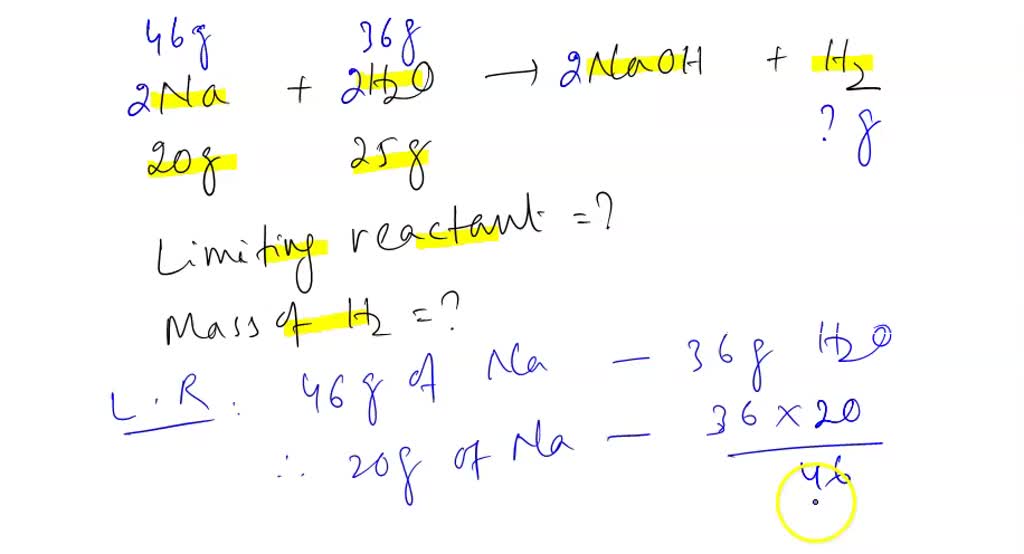 46g 36g
2Na + 2H2O → 2NaOH + H2
20g 25g ? g
Limiting reactant = ?
Mass of H2 = ?
L.R: 46g of Na — 36g H2O
∴ 20g of Na — 36 × 20
46